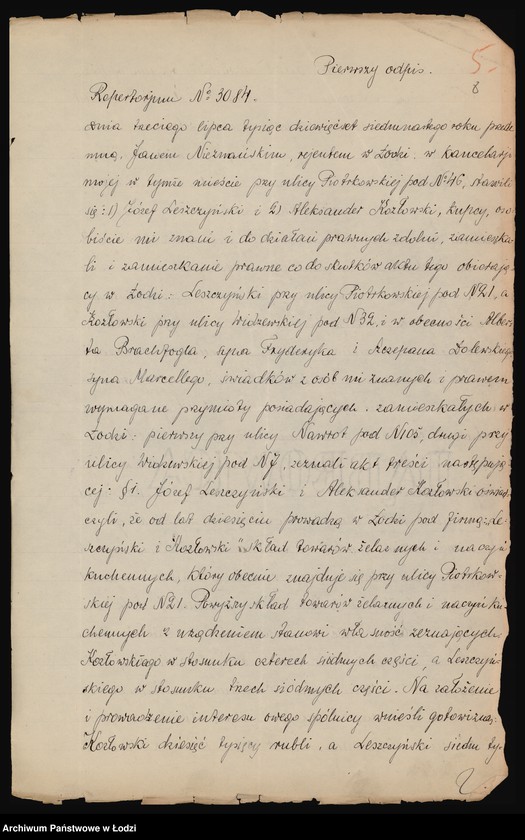 Pierwszy odpis.
5.
8
Repertorjum № 3084.
dnia trzeciego lipca tysiąc dziewięćset siedmnastego roku przede
mną, Janem Nieznańskim, rejentem w Łodzi w kancelarji
mojej w tymże mieście przy ulicy Piotrkowskiej pod № 46, stawili
się: 1) Józef Leszczyński i 2) Aleksander Kozłowski, kupcy, oso-
biście mi znani i do działań prawnych zdolni, zamieszka-
li i zamieszkanie prawne co do skutków aktu tego obierają-
cy w Łodzi: Leszczyński przy ulicy Piotrkowskiej pod № 21, a
Kozłowski przy ulicy Widzewskiej pod № 32, i w obecności Alber-
ta Brachfogla, syna Fryderyka i Szczepana Zolewskiego
syna Marcellego, świadków z osób mi znanych i prawem
wymagane przymioty posiadających, zamieszkałych w
Łodzi: pierwszy przy ulicy Nawrot pod № 105, drugi przy
ulicy Widzewskiej pod № 7, zeznali akt treści następują-
cej: § 1. Józef Leszczyński i Aleksander Kozłowski oświad-
czyli, że od lat dziesięciu prowadzą w Łodzi pod firmą „Le-
szczyński i Kozłowski" skład towarów żelaznych i naczyń
kuchennych, który obecnie znajduje się przy ulicy Piotrkow-
skiej pod № 21. Powyższy skład towarów żelaznych i naczyń ku-
chennych z urządzeniem stanowi własność zeznających
Kozłowskiego w stosunku czterech siódmych części, a Leszczyń-
skiego w stosunku trzech siódmych części. Na założenie
i prowadzenie interesu owego spólnicy wnieśli gotowizną:
Kozłowski dziesięć tysięcy rubli, a Leszczyński siedm ty-
Archiwum Państwowe w Łodzi